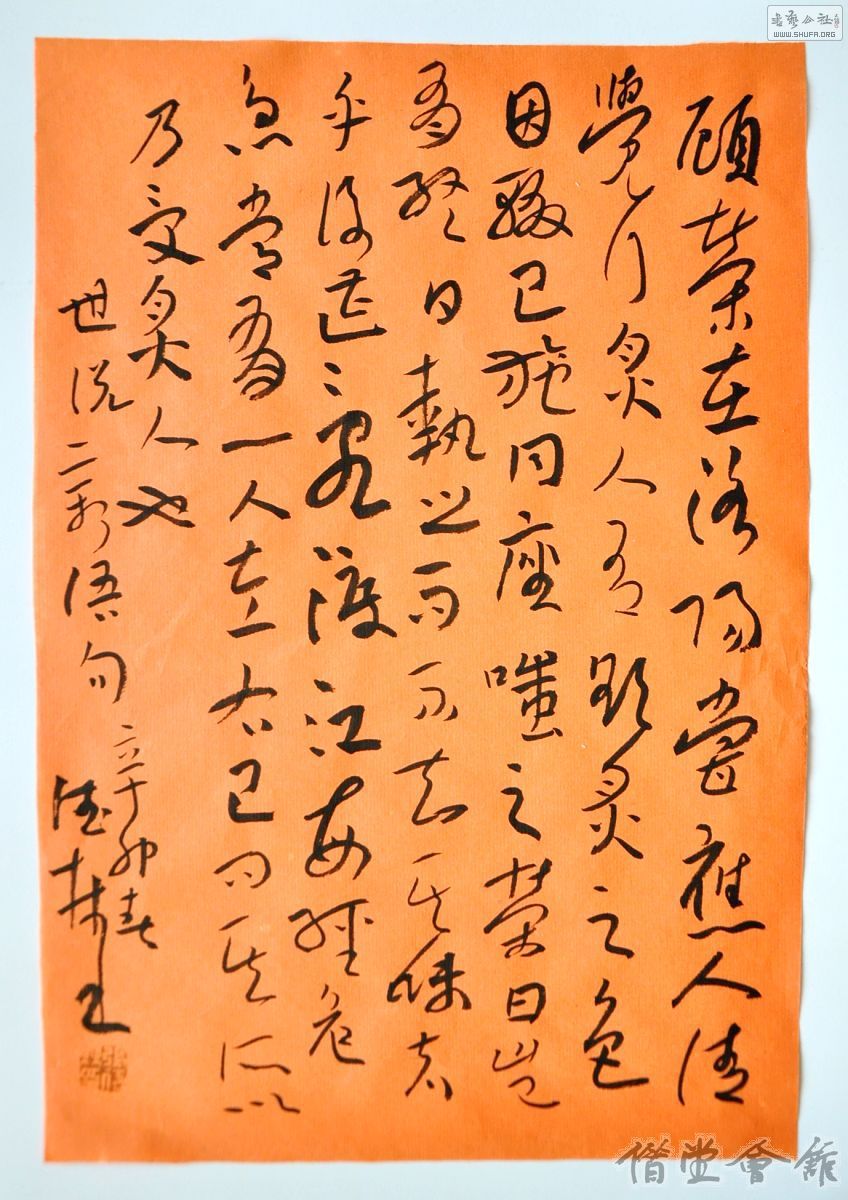 書藝公社
WWW.SHUFA.ORG
顧榮在洛陽嘗應人請
覺行炙人有欲炙之色
因輟已施同座嗤之榮曰豈
有終日執之而不知其味者
乎後遭亂渡江每經危
急常有一人左右已问其所以
乃受炙人也
世说新语句 辛卯春
德林
堂會館